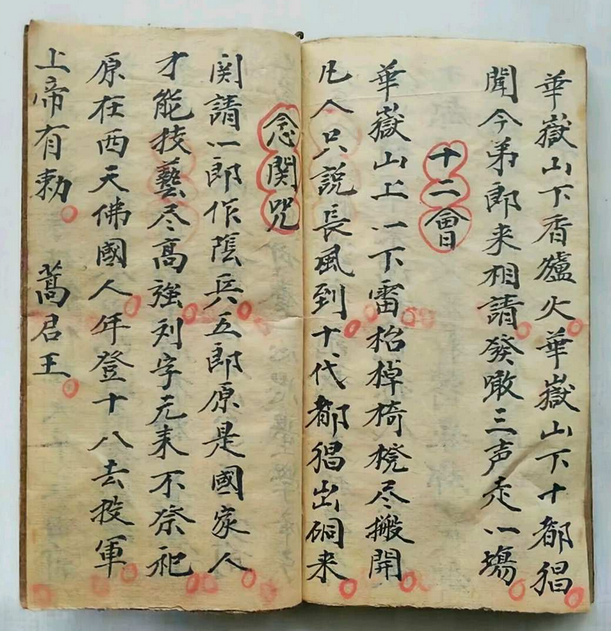 華嶽山下香爐火華嶽山下十都猖
聞今弟郎来相請發嗷三声走一塲
十二會
華嶽山上一下雷枱棹椅櫈尽搬開
凡人只說長風到十代都猖出硐来
念関咒
関請一郎作陰兵五郎原是國家人
才能技藝尽高強列字元来不祭祀
原在西天佛國人年登十八去投軍
上帝有勅 蒿君王